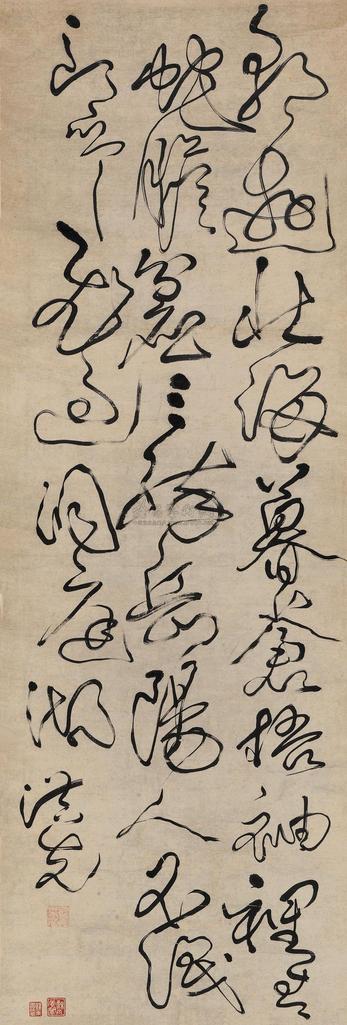 朝遊北海暮蒼梧袖裡青
蛇膽氣粗三醉岳陽人不識
朗吟飛過洞庭湖 洪先